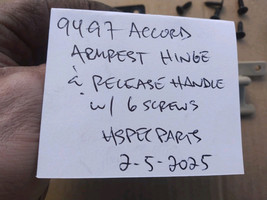 9497 ACCORD
ARMREST HINGE
& RELEASE HANDLE
w/ 6 SCREWS
HSPECPARTS
2-5-2025